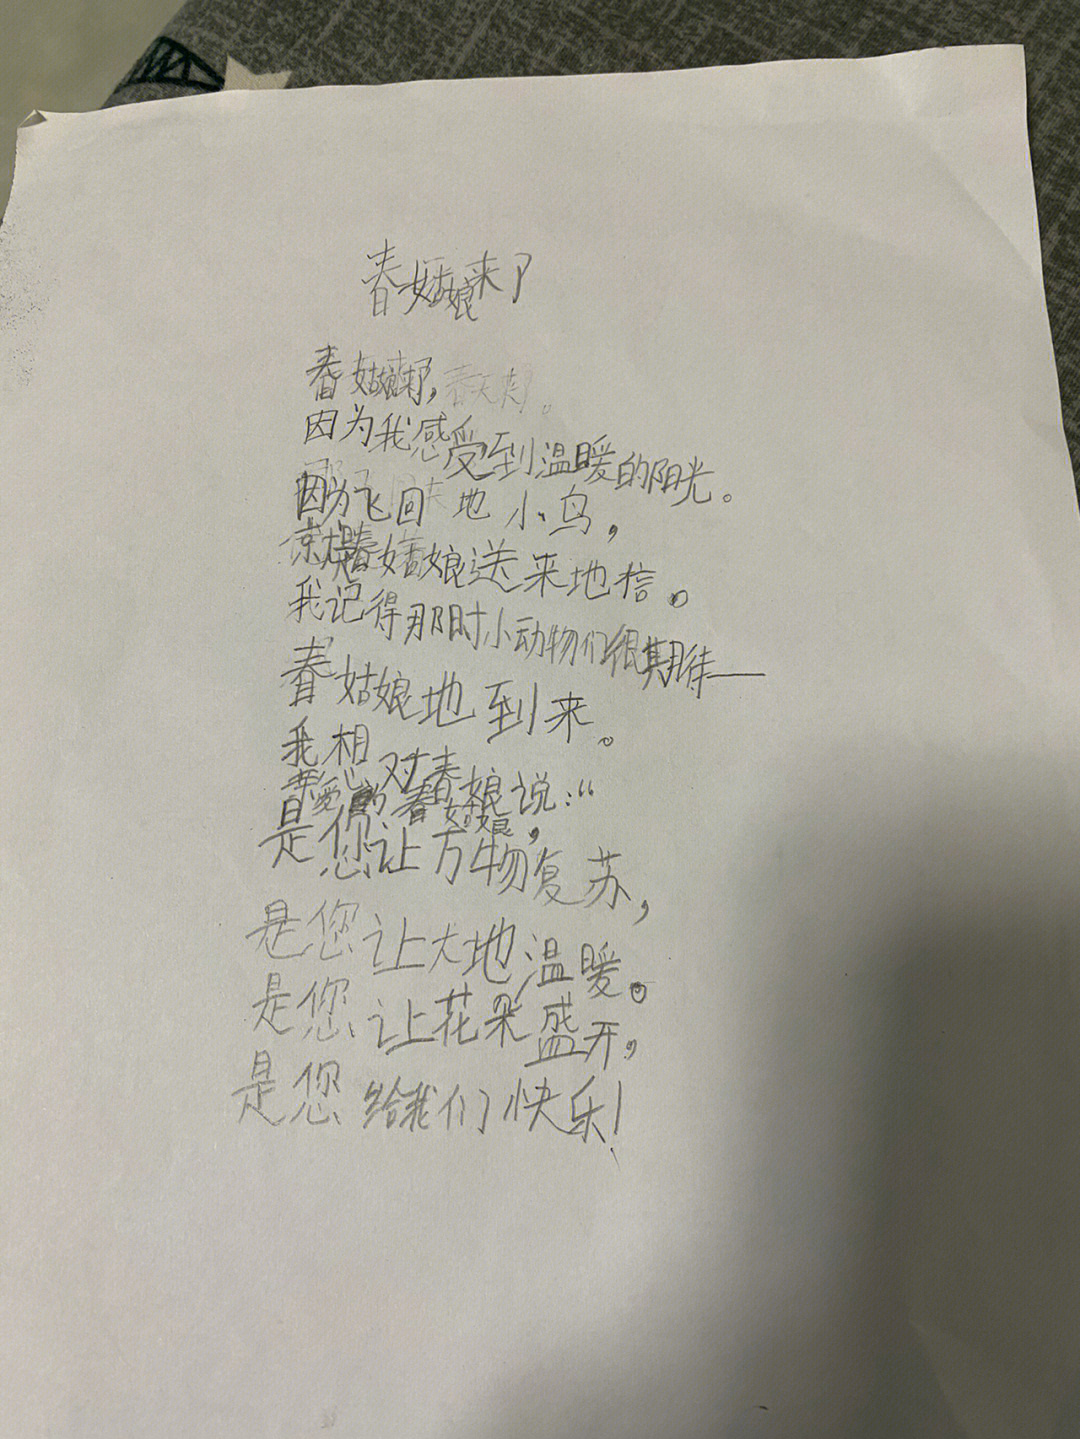 春姑娘来了
春姑娘来了，
因为我感受到温暖的阳光。
因为飞回地小鸟，
就是春姑娘送来地信。
我记得那时小动物们很期待——
春姑娘地到来。
我相对春姑娘说：“
亲爱的春姑娘，
是您让万物复苏，
是您让大地温暖。
是您让花朵盛开，
是您给我们快乐！